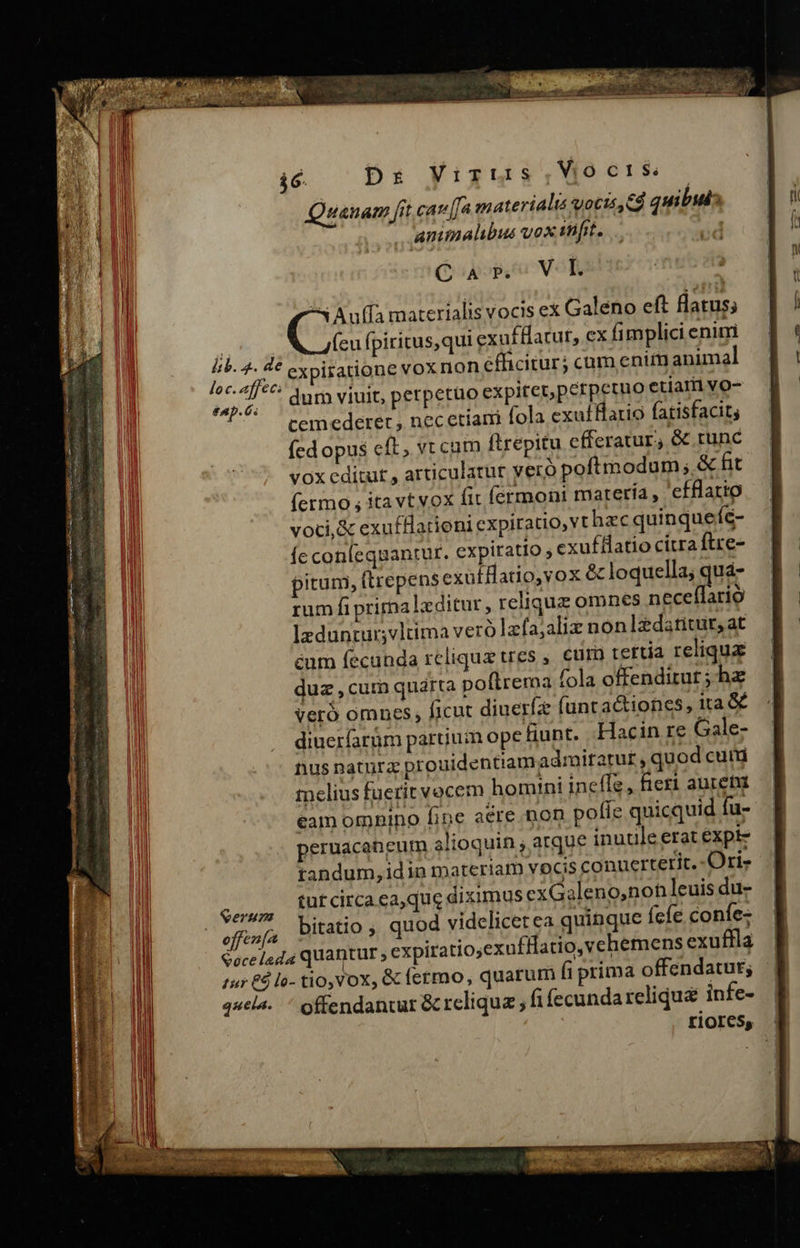 36. DE VITIIS VOCIS.
Quænam ſit cauſſa materialis vocis, & quibus
animalibus vox inſit.
CAP. VI.
CAuſſa materialis vocis ex Galeno eſt flatus,
ſeu ſpiritus, qui exufflatur, ex ſimplici enim
lib. 4. de expiratione vox non efficitur; cum enim animal
loc. affec. dum viuit, perpetuo expiret, perpetuo etiam vo-
cap. 6. cem ederet, nec etiam ſola exufflatio ſatisfacit,
ſed opus eſt, vt cum ſtrepitu efferatur, & tunc
vox editur, articulatur verò poſtmodum, & fit
ſermo; ita vt vox ſit ſermoni materia, efflatio
voci, & exufflationi expiratio, vt hæc quinque ſe-
ſe conſequantur. expiratio, exufflatio citra ſtre-
pitum, ſtrepens exufflatio, vox & loquella; qua-
rum ſi prima læditur, reliquæ omnes neceſſariò
læduntur; vltima verò læſa, aliæ non lædantur, at
cum ſecunda reliquæ tres, cum tertia reliquæ
duæ, cum quarta poſtrema ſola offenditur; hæ
verò omnes, ſicut diuerſæ ſunt actiones, ita &
diuerſarum partium ope fiunt. Hac in re Gale-
nus naturæ prouidentiam admiratur, quod cum
melius fuerit vocem homini ineſſe, fieri autem
eam omnino ſine aëre non poſſe quicquid ſu-
peruacaneum alioquin, atque inutile erat expi-
randum, id in materiam vocis conuerterit. Ori-
tur circa ea, quę diximus ex Galeno, non leuis du-
Verum bitatio, quod videlicet ea quinque ſeſe conſe-
offenſa
voce læda quantur, expiratio, exufflatio, vehemens exuffla
tur & lo- tio, vox, & ſermo, quarum ſi prima offendatur,
quela. offendantur & reliquæ, ſi ſecunda reliquæ infe-
riores,